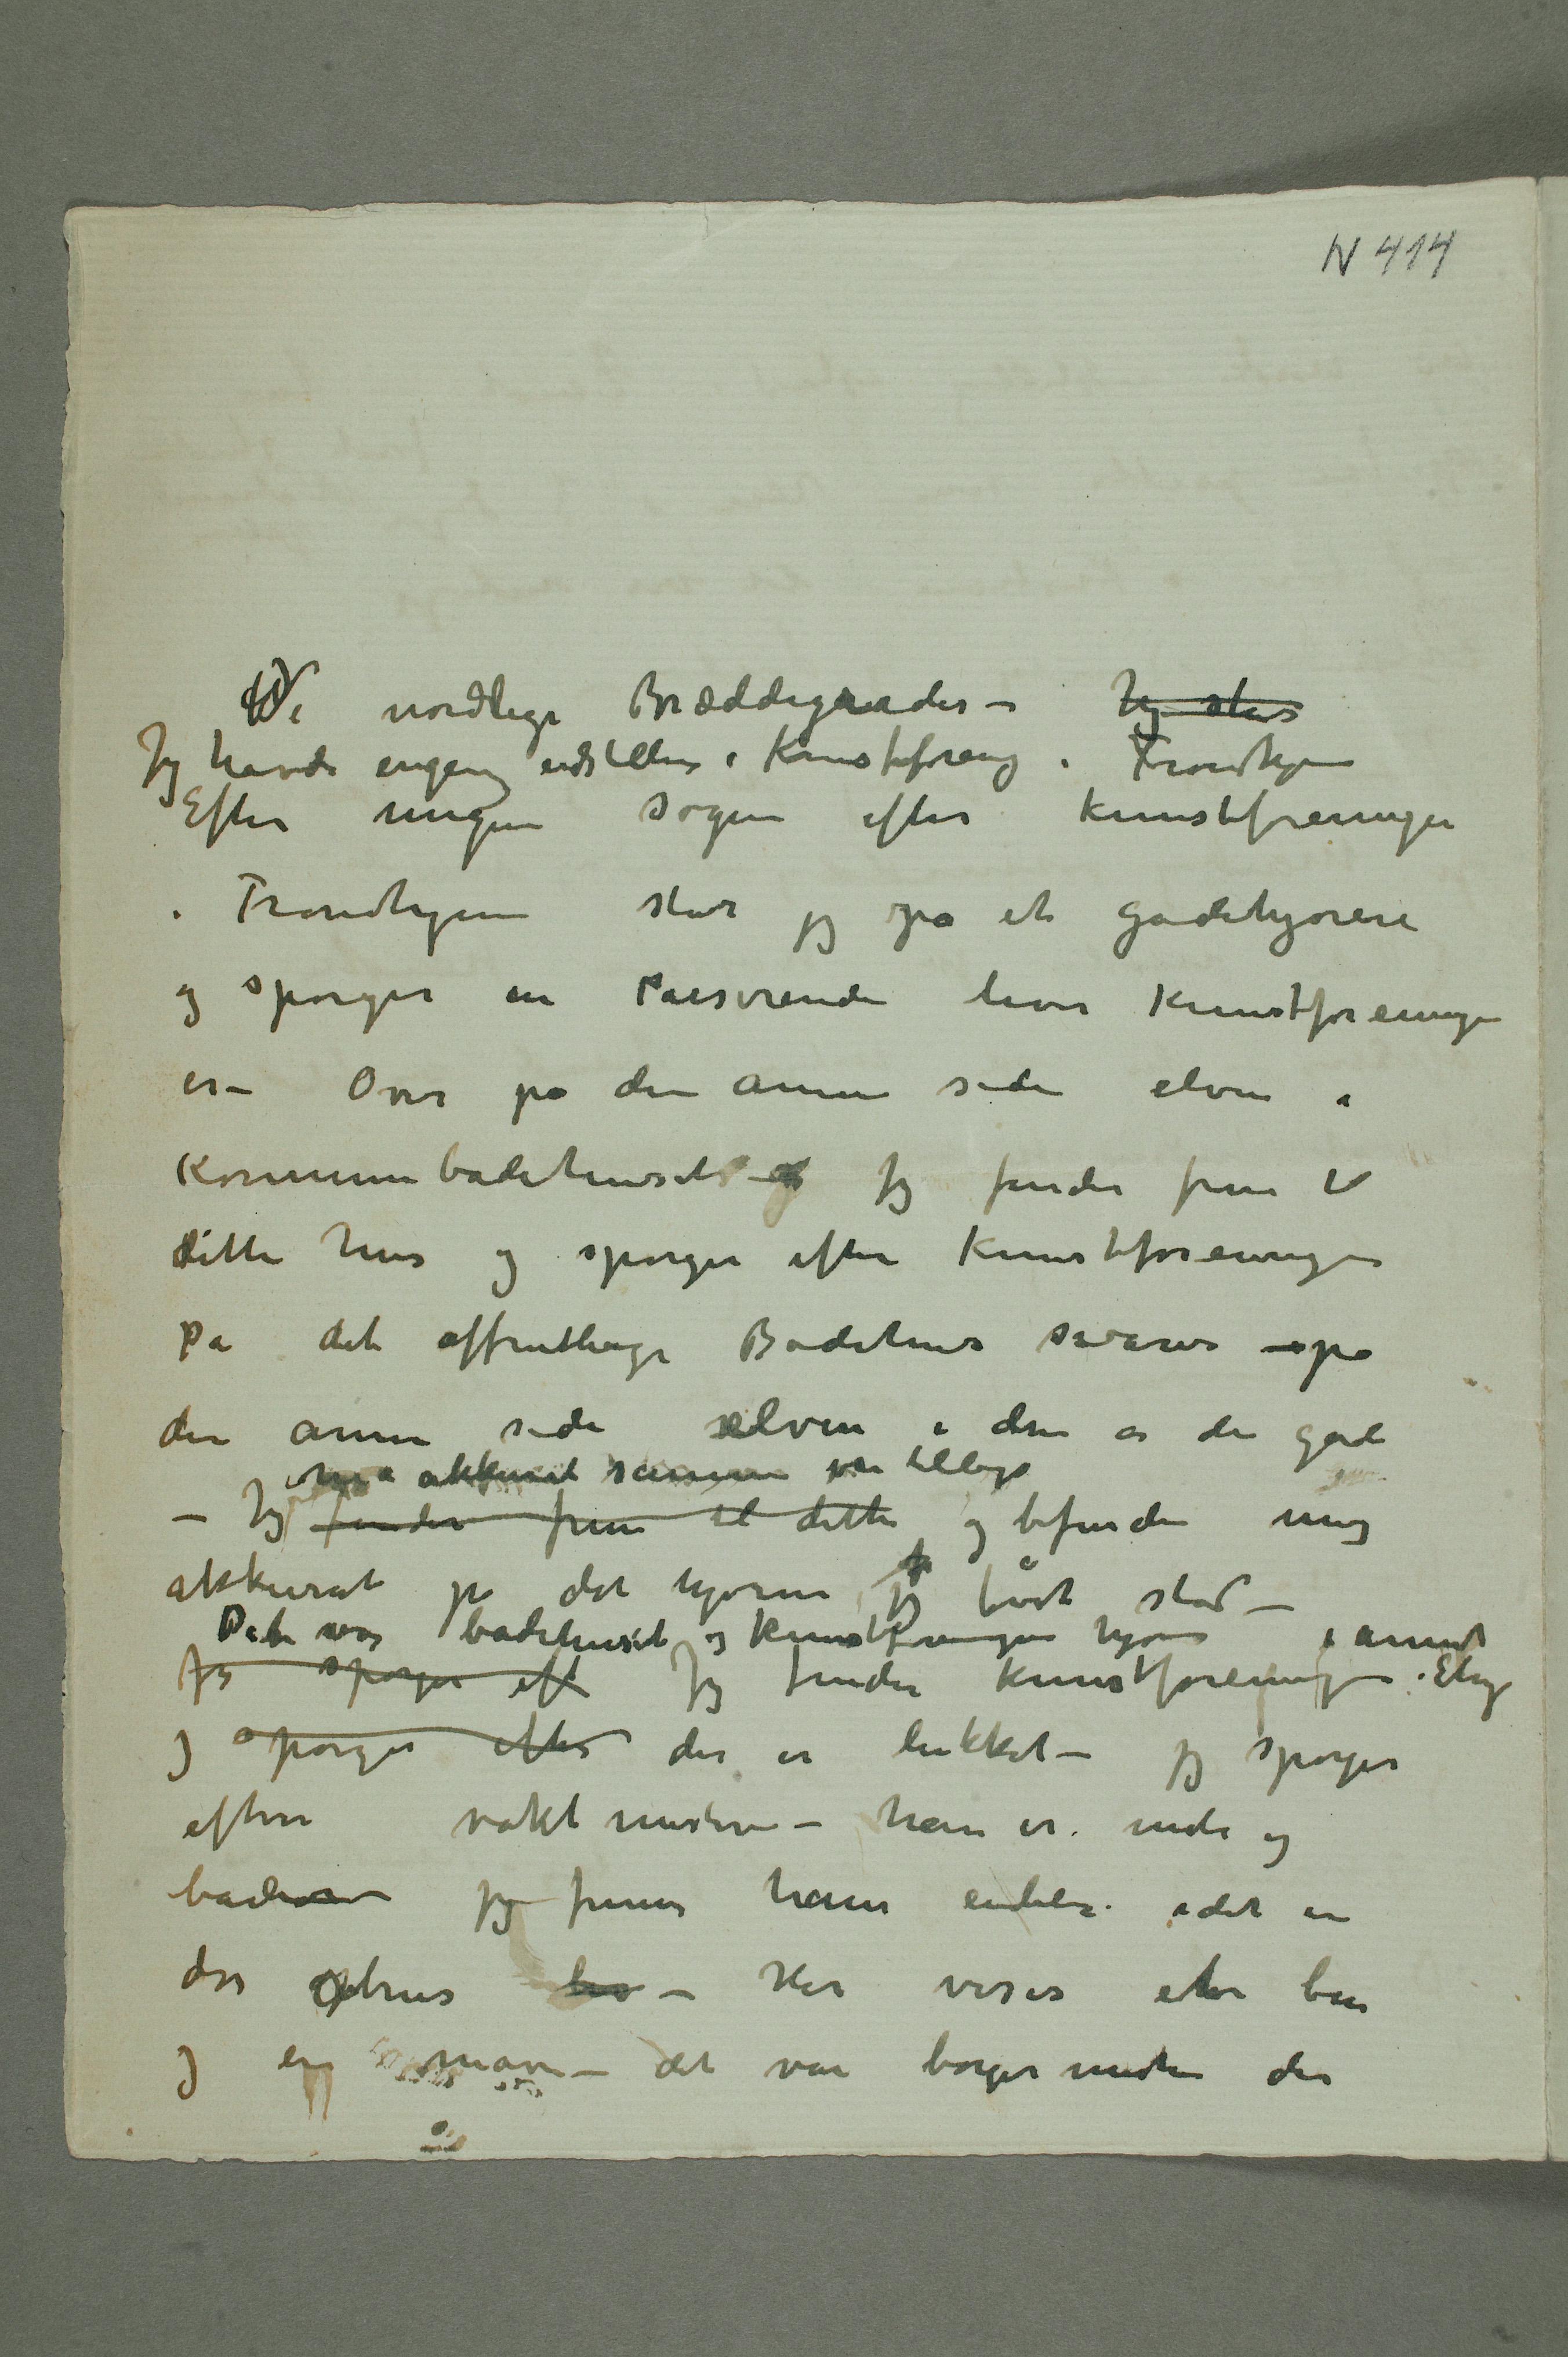 N 414
De nordlige Bræddegaarder –
Jeg havde engang udstilling i Kunstforening i Trondhjem
Efter megen søgen efter kunstforeningen
i Trondhjem står jeg på et gadehjørne
og spørger en Passerende hvor Kunstforeningen
er – Over på den anen side elven i
Kommunebadehuset – Jeg finder frem til
dette hus og spørger efter Kunstforeningen
På det offentlige Badehus svares – på
den anen side elven i den og den gade
må akkurat samme vei tilbage
– Jeg finder frem til dette og befinder mig
akkurat på det hjørne jeg først stod –
Det var badehuset og Kunstforeningens hjørne i anent
Jeg spørger eft Jeg finder kunstforeningen Etag
og spørger efter der er lukket – jeg spørger
efter vaktmesteren – han er inde og
bader jeg finner ham endelig idet en
dør åbnes – Her vises et ben
og en mave – det var borgermester der